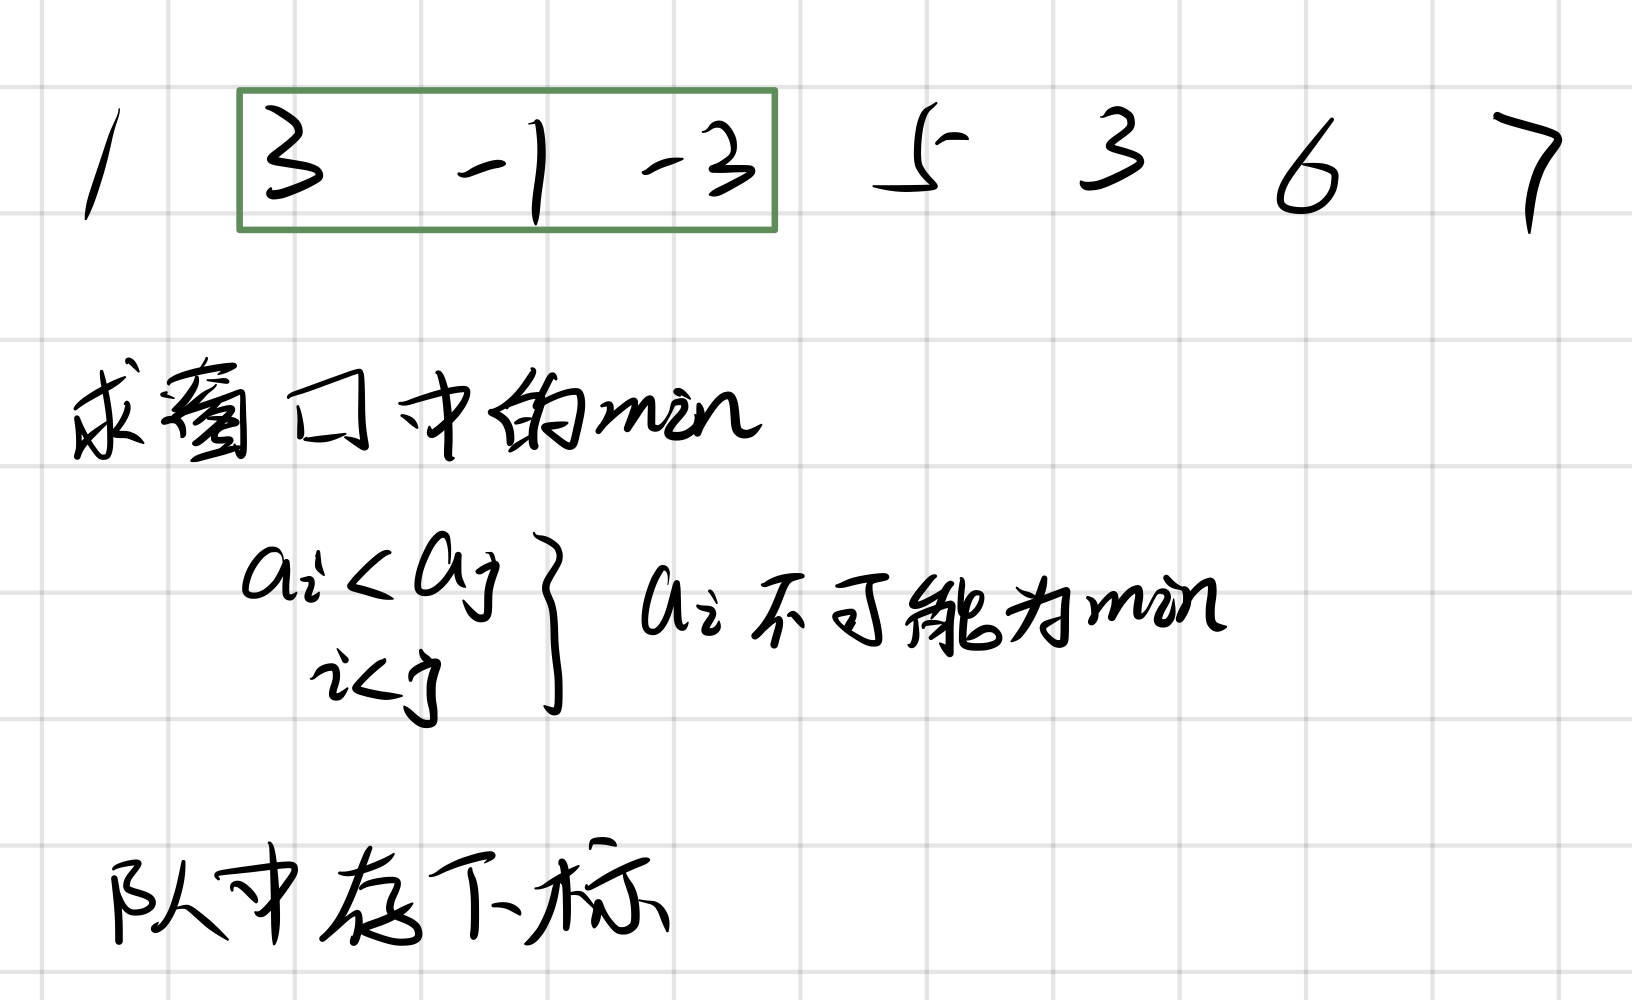 1 3 -1 -3 5 3 6 7
求窗口中的min
ai < aj
i<j } ai 不可能为min
队中存下标